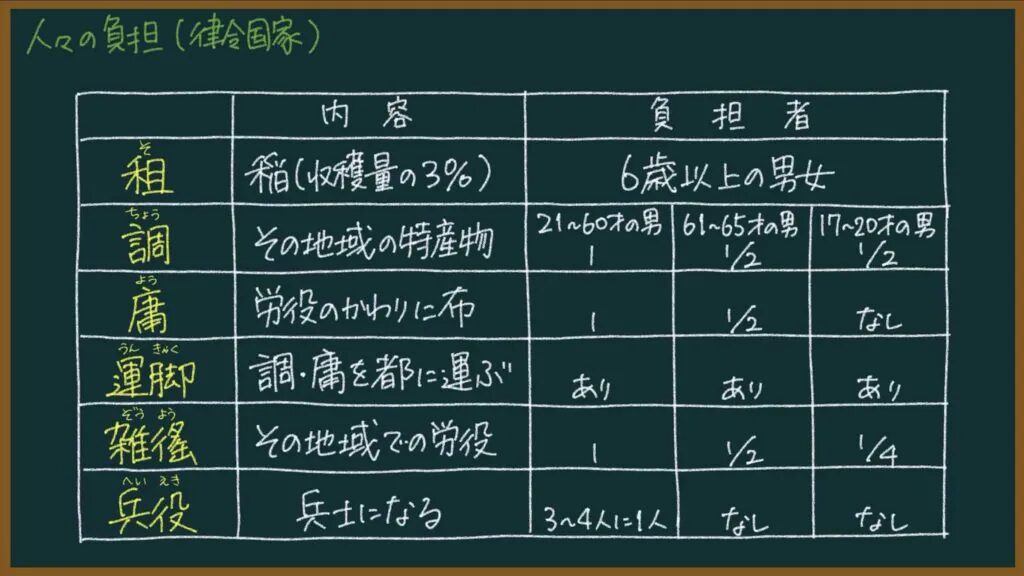 人々の負担(律令国家)
内容 負担者
そ
租 稲(収穫量の3%) 6歳以上の男女
ちょう
調 その地域の特産物 21~60才の男 61~65才の男 17~20才の男
1 1/2 1/2
よう
庸 労役のかわりに布 1 1/2 なし
うんきゃく
運脚 調・庸を都に運ぶ あり あり あり
ぞうよう
雑徭 その地域での労役 1 1/2 1/4
へいえき
兵役 兵士になる 3~4人に1人 なし なし